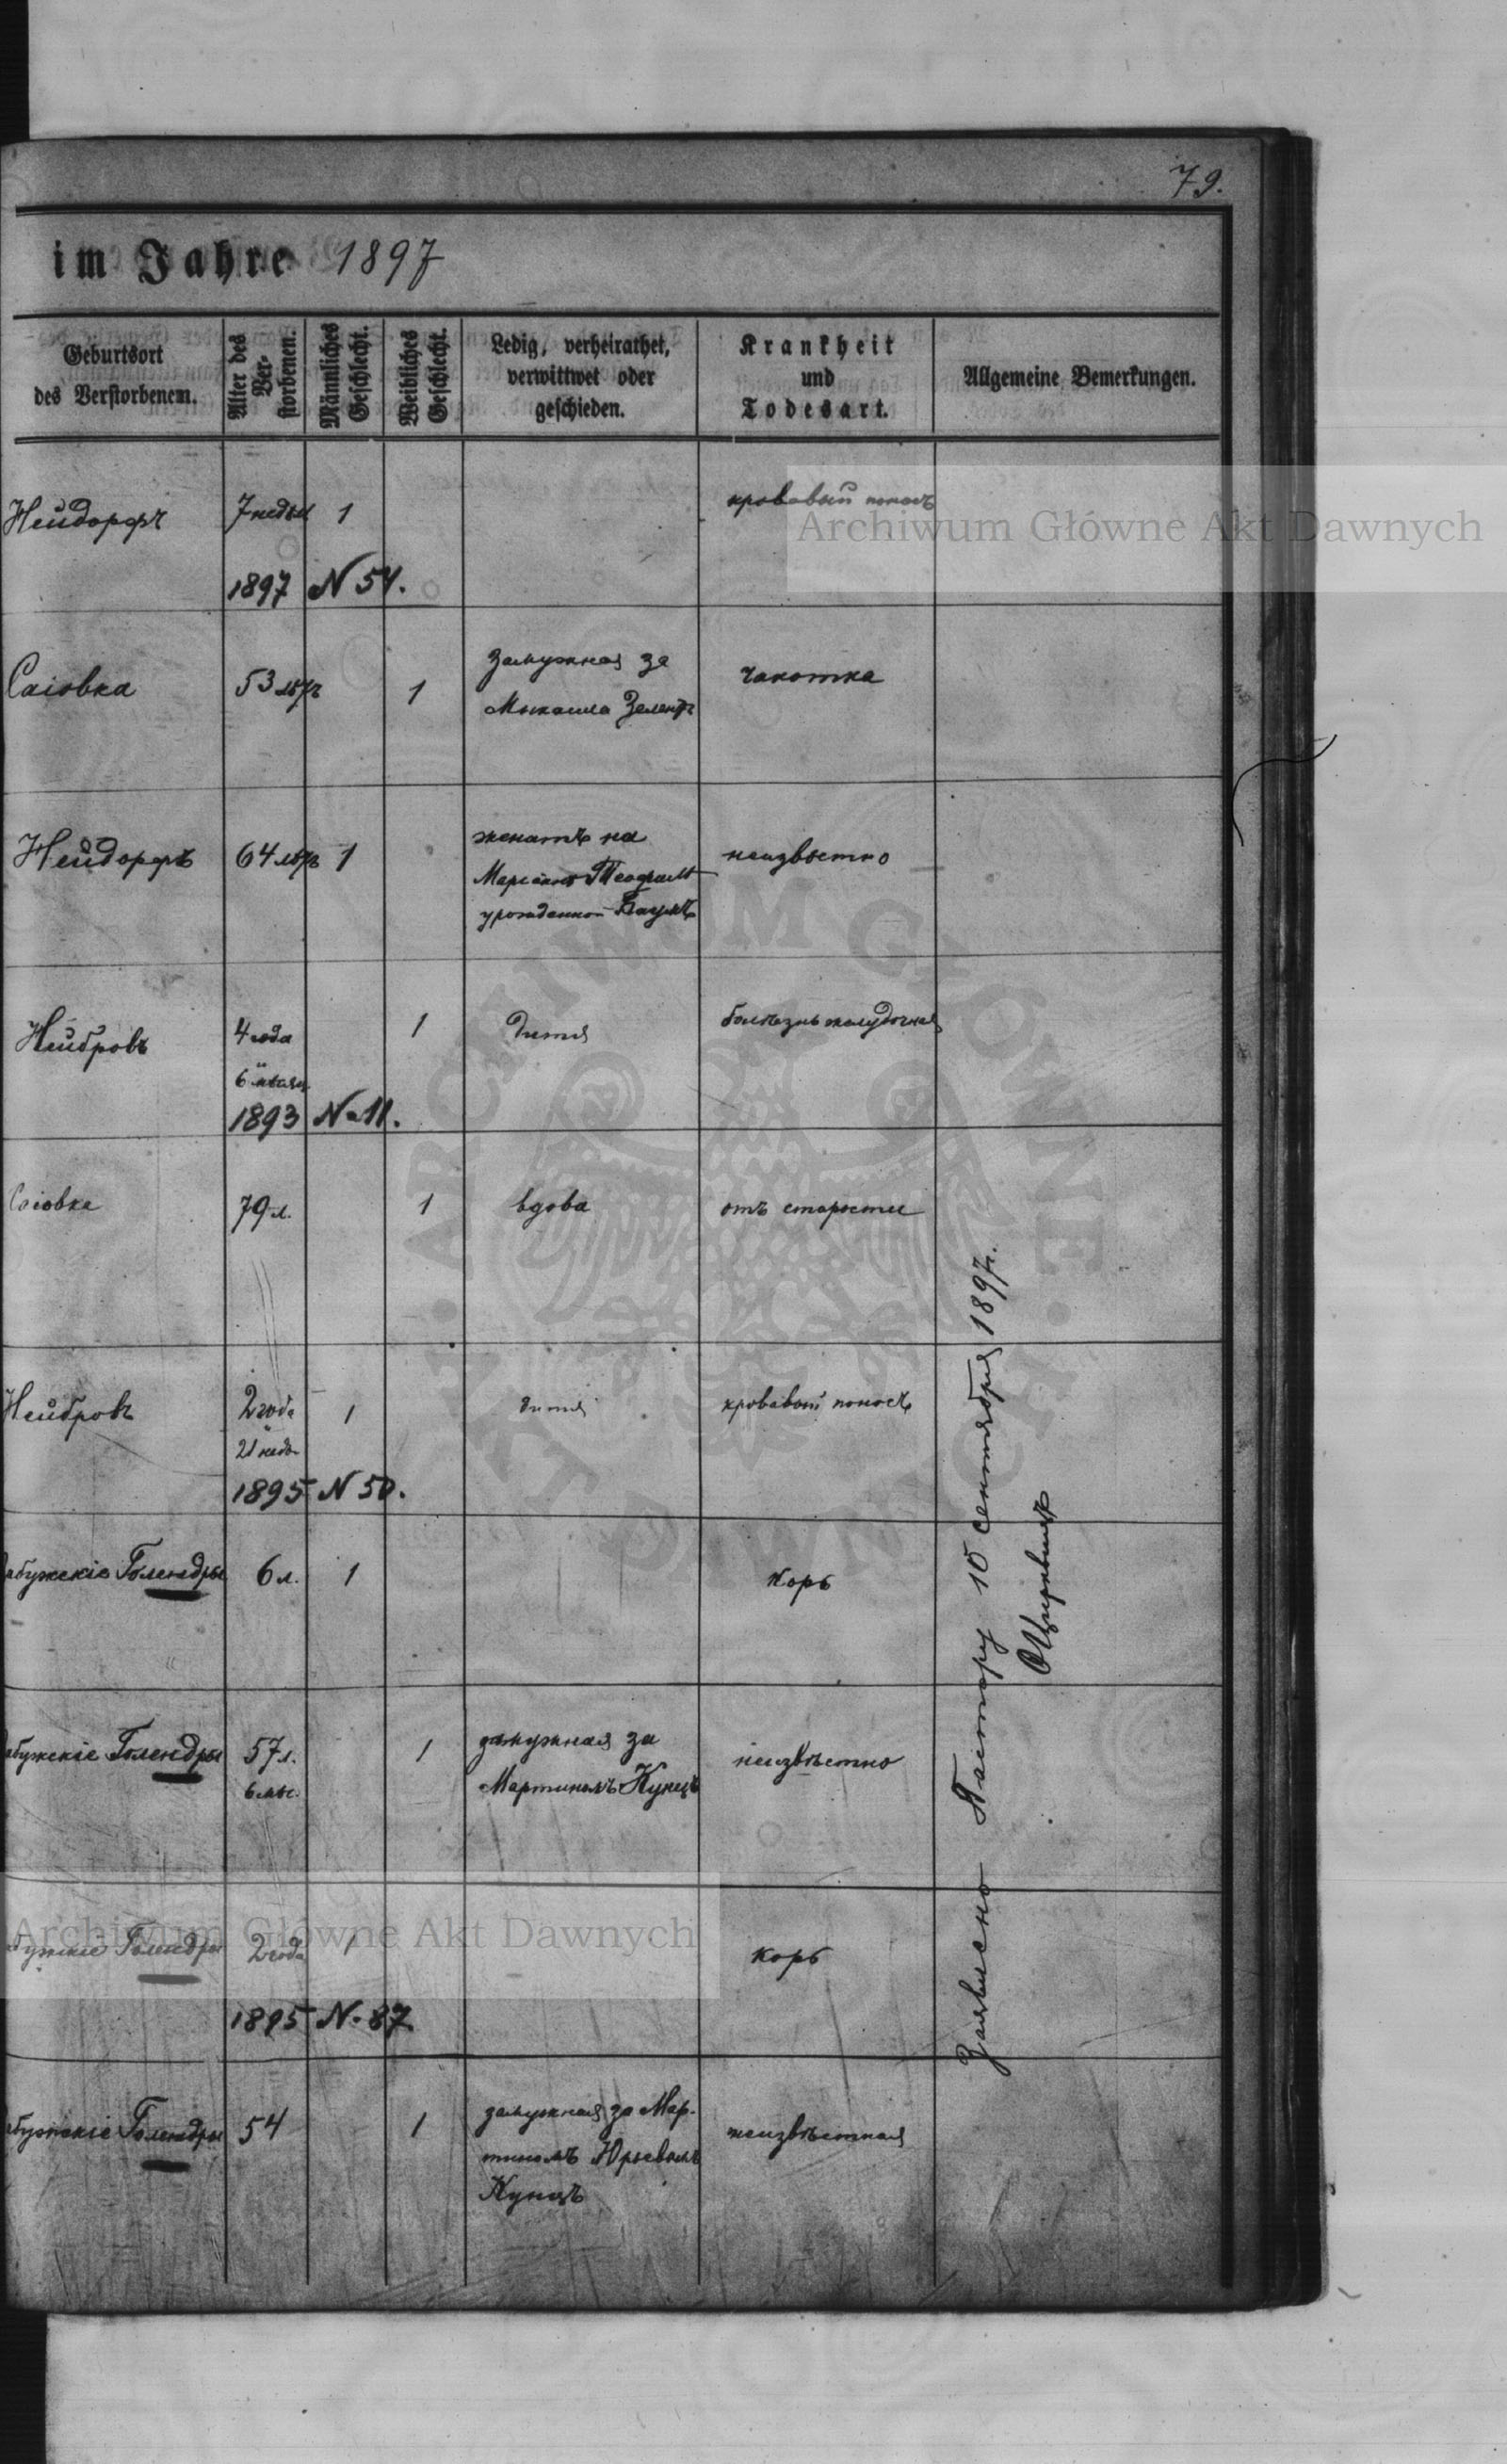 79.
im Jahre 1897
Geburtsort
des Verstorbenen.
Alter des
Ver-
storbenen.
Männliches
Geschlecht.
Weibliches
Geschlecht.
Ledig, verheirathet,
verwittwet oder
geschieden.
Krankheit
und
Todesart.
Allgemeine Bemerkungen.
Нейдорфъ 7 недѣл 1 кровавый поносъ
1897 N 54.
Саіовка 53 лѣтъ 1 замужная за чахотка
Зеленцъ
Нейдорфъ 64 лѣтъ 1 женатъ на неизвѣстно
урожденной Баумъ
Нейбровъ 4 года 1 дитя болѣзнь желудочная
6
1893 N 11.
Саіовка 79 л. 1 вдова отъ старости
Нейбровъ 2 года 1 дитя кровавый поносъ
21 недѣ
1895 N 50.
абужскіе Голендры 6 л. 1 корь
абужскіе Голендры 57 л. 1 замужная за неизвѣстно
6 мѣс. Мартиномъ Кунцъ
Голендры 2 года 1 корь
1895 N. 87
абужскіе Голендры 54 1 замужная за Мар- неизвѣстная
тиномъ Юрьевымъ
Кунцъ
Заявлено Пастору 10 сентября 1897 г.
Archiwum Główne Akt Dawnych
Archiwum Główne Akt Dawnych
ARCHIWUM GŁÓWNE AKT DAWNYCH